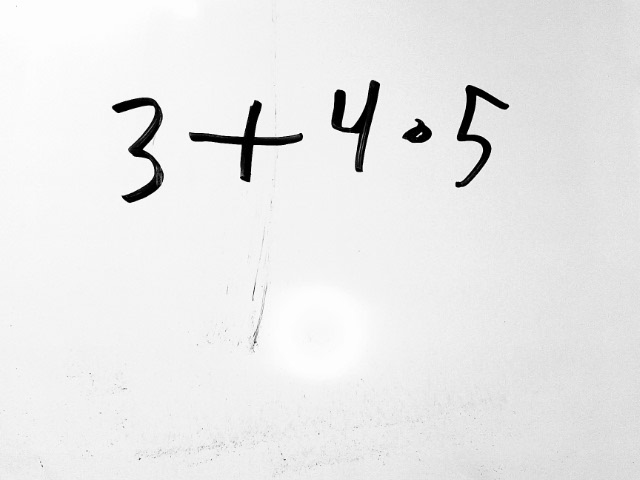 3 + 4 · 5